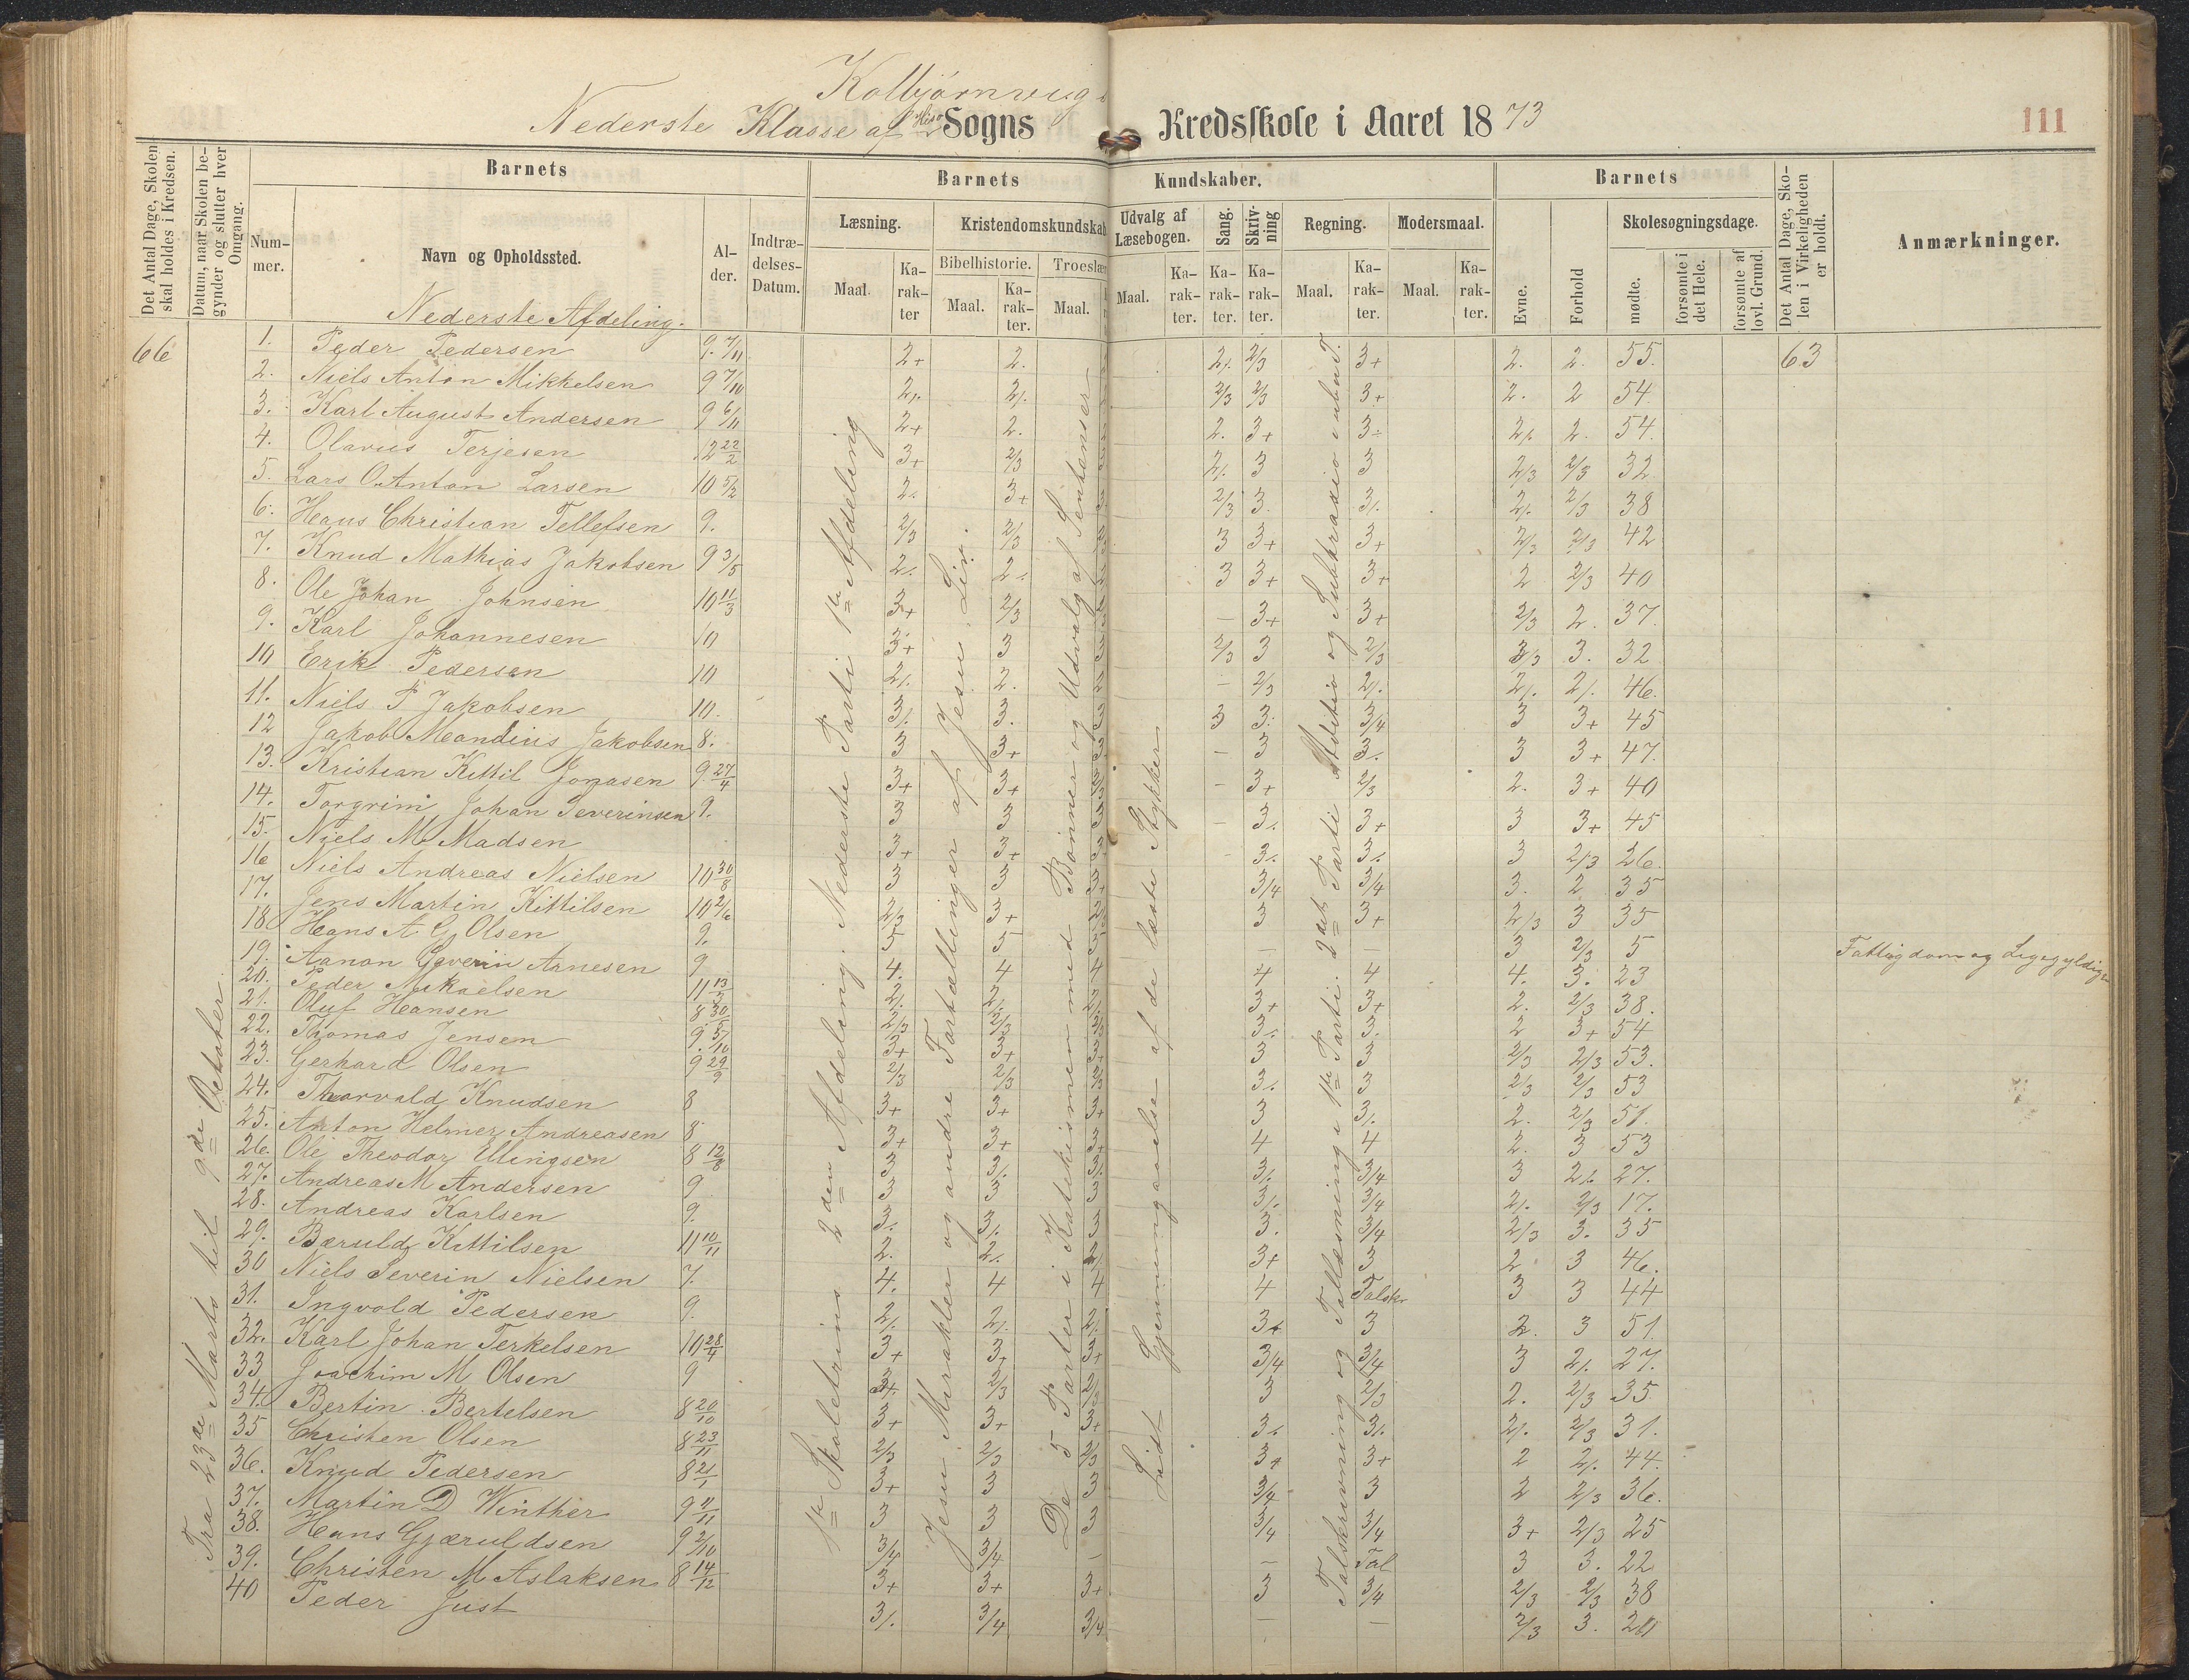 Kolbjørnsvig
Nederste Klasse af Hisø Sogns Kredsskole i Aaret 1873
111
Det Antal Dage, Skolen skal holdes i Kredsen.
Datum, naar Skolen begynder og slutter hver Omgang.
Barnets
Nummer.
Navn og Opholdssted.
Alder.
Indtrædelses-Datum.
Barnets Kundskaber.
Læsning.
Maal.
Karakter
Kristendomskundskab
Bibelhistorie.
Maal.
Karakter.
Troeslære
Maal.
Udvalg af Læsebogen.
Maal.
Karakter.
Sang.
Karakter.
Skrivning
Karakter.
Regning.
Maal.
Karakter.
Modersmaal.
Maal.
Karakter.
Barnets
Evne.
Forhold
Skolesøgningsdage.
mødte.
forsømte i det Hele.
forsømte af lovl. Grund.
Det Antal Dage, Skolen i Virkeligheden er holdt.
Anmærkninger.
Nederste Afdeling.
66
63
Fra 23de Marts til 9de Oktober
1ste Skoletrins 2den Afdeling. Nederste Parti 1ste Afdeling
Jesu Mirakler og andre Fortællinger af Jesu Liv.
De 5 Parter i Katekismen med Bønner og Udvalg af Sentenser
Lidt Gjennemgaaelse af de læste Stykker
Talskrivning og Tallæsning i 1ste Parti. 2det Parti Additio og Subtraxio i ubnt T.
1. Peder Pedersen 9. 7/11 2+ 2. 2/. 2/3 3+ 2. 2. 55.
2. Niels Anton Mikkelsen 9 7/10 2/. 2/. 2/3 2/3 3+ 2. 2 54
3. Karl August Andersen 9 6/11 2+ 2. 2. 3+ 3÷ 2/. 2. 54.
4. Olavus Terjesen 12 22/2 3+ 2/3 2/. 3 3 2/3 2/3 32
5. Lars O. Anton Larsen 10 5/2 2/. 3+ 2/3 3. 3/. 2/. 2/3 38
6. Hans Christian Tellefsen 9. 2/3 2/3 3 3+ 3+ 2/3 2/3 42
7. Knud Mathias Jakobsen 9 3/5 2/. 2/. 3 3+ 3+ 2 2/3 40
8. Ole Johan Johnsen 10 11/3 3+ 2/3 – 3+ 3+ 2/3 2. 37.
9. Karl Johannesen 10 3+ 3 2/3 3 2/3 3/3 3. 32
10 Erik Pedersen 10 2/. 2. – 2/3 2/. 2/. 2/. 46.
11. Niels P Jakobsen 10. 3/. 3. 3 3. 3/4 3 3+ 45
12 Jakob Meandius Jakobsen 8. 3 3+ – 3 3/. 3 3+ 47.
13. Kristian Kittil Jonasen 9 27/4 3+ 3+ – 3+ 2/3 2. 3+ 40
14. Torgrim Johan Severinsen 9. 3 3 – 3/. 3+ 3 3+ 45
15. Niels M. Madsen 3+ 3+ – 3/. 3/. 3 2/3 26.
16 Niels Andreas Nielsen 10 30/8 3 3 3+ 3/4 3/4 3. 2 35
17. Jens Martin Kittilsen 10 2/6 2/3 3+ 2/3 3 3+ 2/3 3 35
18 Hans A. G. Olsen 9. 5 5 5 – – 3 2/3 5
19. Aanon Severin Arnesen 9 4. 4 4 4 4 4. 3. 23 Fattigdom og Ligegyldig
20. Peder Mikaelsen 11 13/3 2/. 2/. 2/. 3+ 3+ 2. 2/3 38.
21. Oluf Hansen 8 30/5 2/3 2/3 3/. 3. 2 3+ 54
22. Thomas Jensen 9. 5/10 3+ 3+ 3+ 3 3 2/3 2/3 53.
23. Gerhard Olsen 9 29/9 2/3 2/3 2/3 3/. 3 2/3 2/3 53
24. Thorvald Knudsen 8 3+ 3+ 3+ 3 3/. 2. 2/3 51.
25. Anton Helmer Andreasen 8 3+ 3+ 3+ 4 4 2. 3 53
26. Ole Theodor Ellingsen 8 12/8 3 3/. 3/. 3/. 3/4 3 2/. 27.
27. Andreas M Andersen 9 3 3 3 3/. 3/4 2/. 2/3 17.
28. Andreas Karlsen 9. 3/. 3/. 3 3. 3/4 2/3 3. 35
29. Bæruld Kittilsen 11 10/11 2. 2/. 2/. 3+ 3 2 3 46.
30 Niels Severin Nielsen 7. 4. 4 4 4 Talskr 3 3 44
31. Ingvold Pedersen 9. 2/. 2/. 2/. 3+ 3 2. 3 51.
32. Karl Johan Terkelsen 10 28/4 3+ 3+ 3+ 3/4 3/4 3 2/. 27.
33 Joachim M Olsen 9 2/3 2/. 3 2/3 2. 2/3 35
34. Bertin Bertelsen 8 20/10 3+ 3+ 3+ 3/. 3/. 2/. 2/3 31.
35 Christen Olsen 8 23/11 2/3 2/3 2/3 3+ 3+ 2 2/. 44.
36. Knud Pedersen 8 21/1 3+ 3 3 3/4 3 2 2/3 36.
37. Martin D Winther 9 11/11 3 3 3 3/4 3/4 3+ 2/3 25
38. Hans Gjæruldsen 9 2/10 3/4 3/4 – – Tal 3 3. 22
39. Christen M Aslaksen 8 14/12 3+ 3+ 3+ 3 3/4 2/3 2/3 38
40 Peder Just 3/. 3/4 3/4 – – 2/3 3. 20